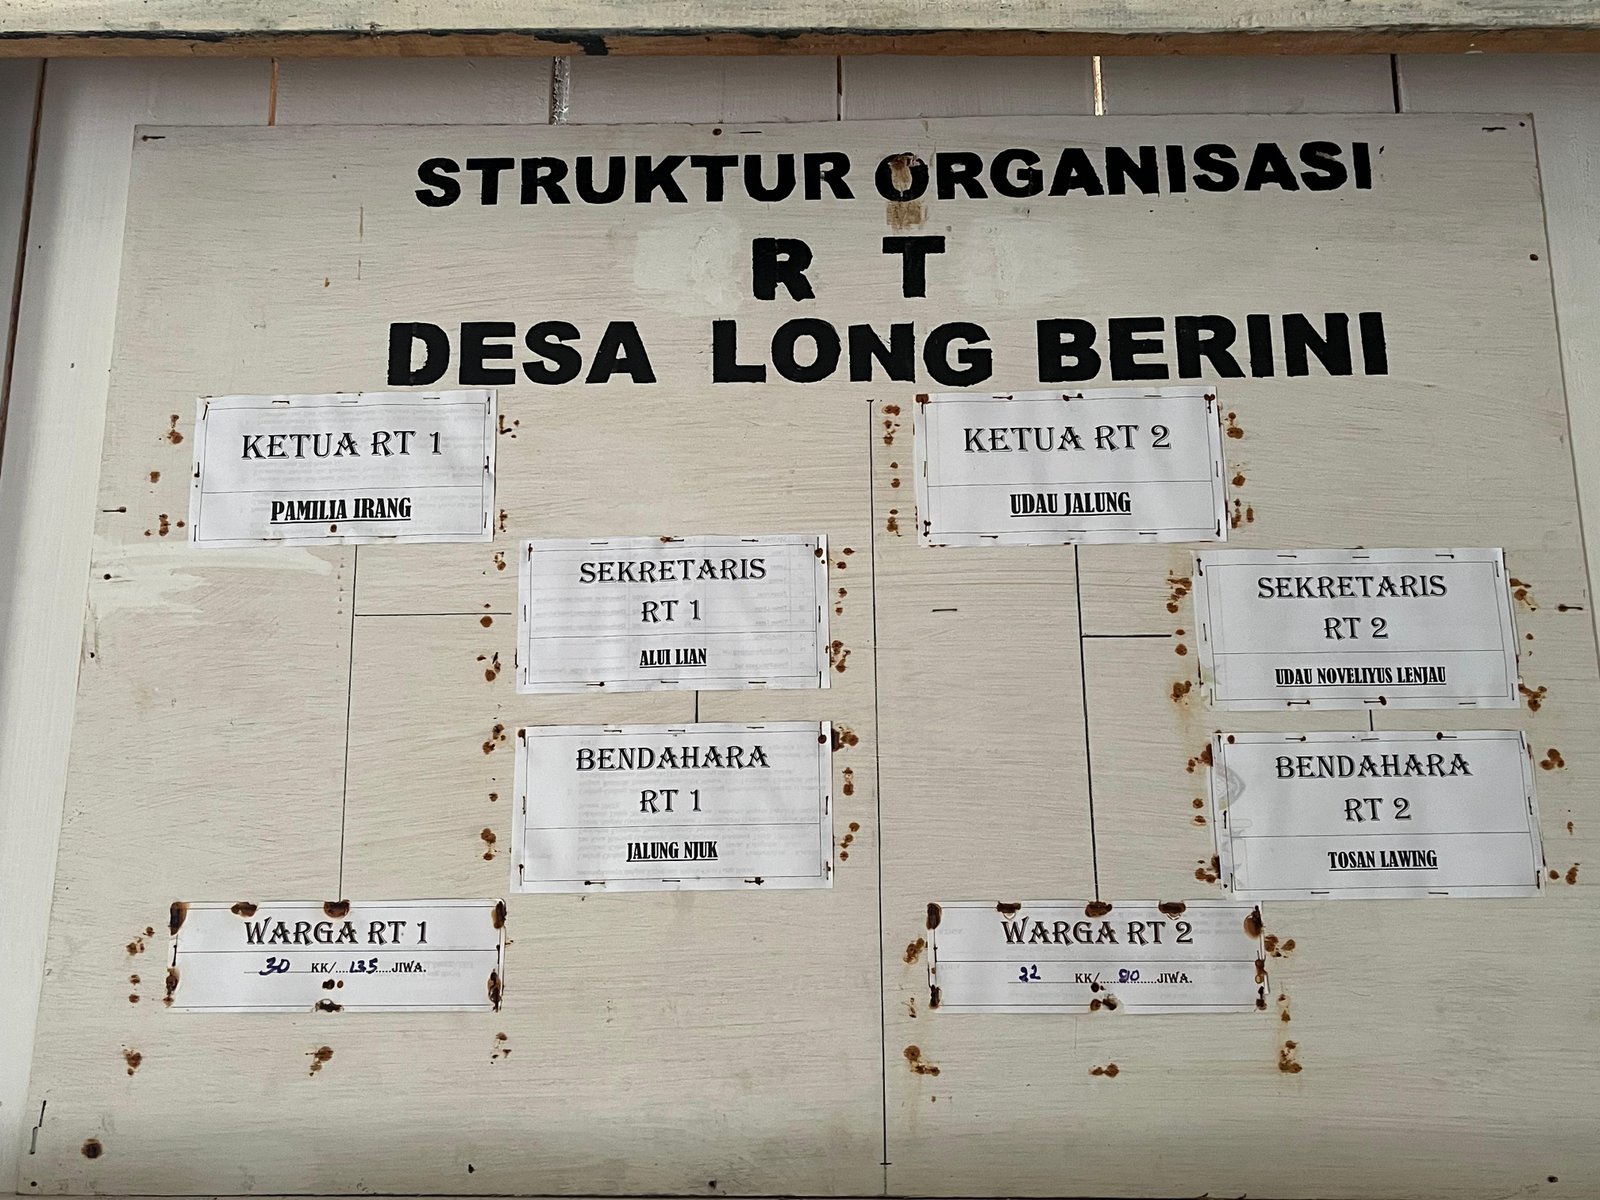 STRUKTUR ORGANISASI
R T
DESA LONG BERINI
KETUA RT 1
PAMILIA IRANG
SEKRETARIS
RT 1
ALUI LIAN
BENDAHARA
RT 1
JALUNG NJUK
WARGA RT 1
30 KK/....135....JIWA.
KETUA RT 2
UDAU JALUNG
SEKRETARIS
RT 2
UDAU NOVELIYUS LENJAU
BENDAHARA
RT 2
TOSAN LAWING
WARGA RT 2
22 KK/.....90......JIWA.